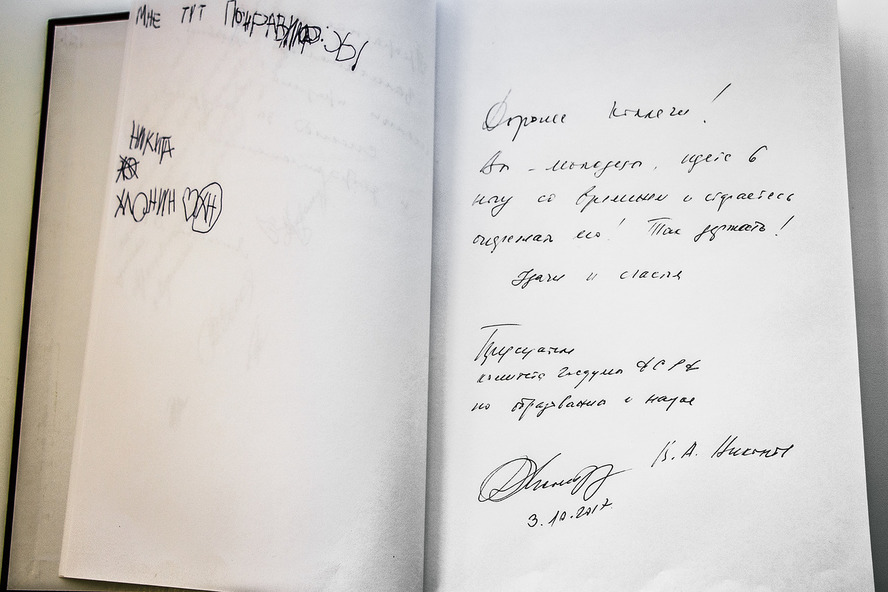 МНЕ ТУТ
НИКИТА
Дорогие коллеги!
Вы - молодцы, идете в
ногу со временем и стараетесь
опережать его! Так держать!
Удачи и счастья
Председатель
комитета Госдумы ФС РФ
по образованию и науке
В. А. Никонов
3.10.2017